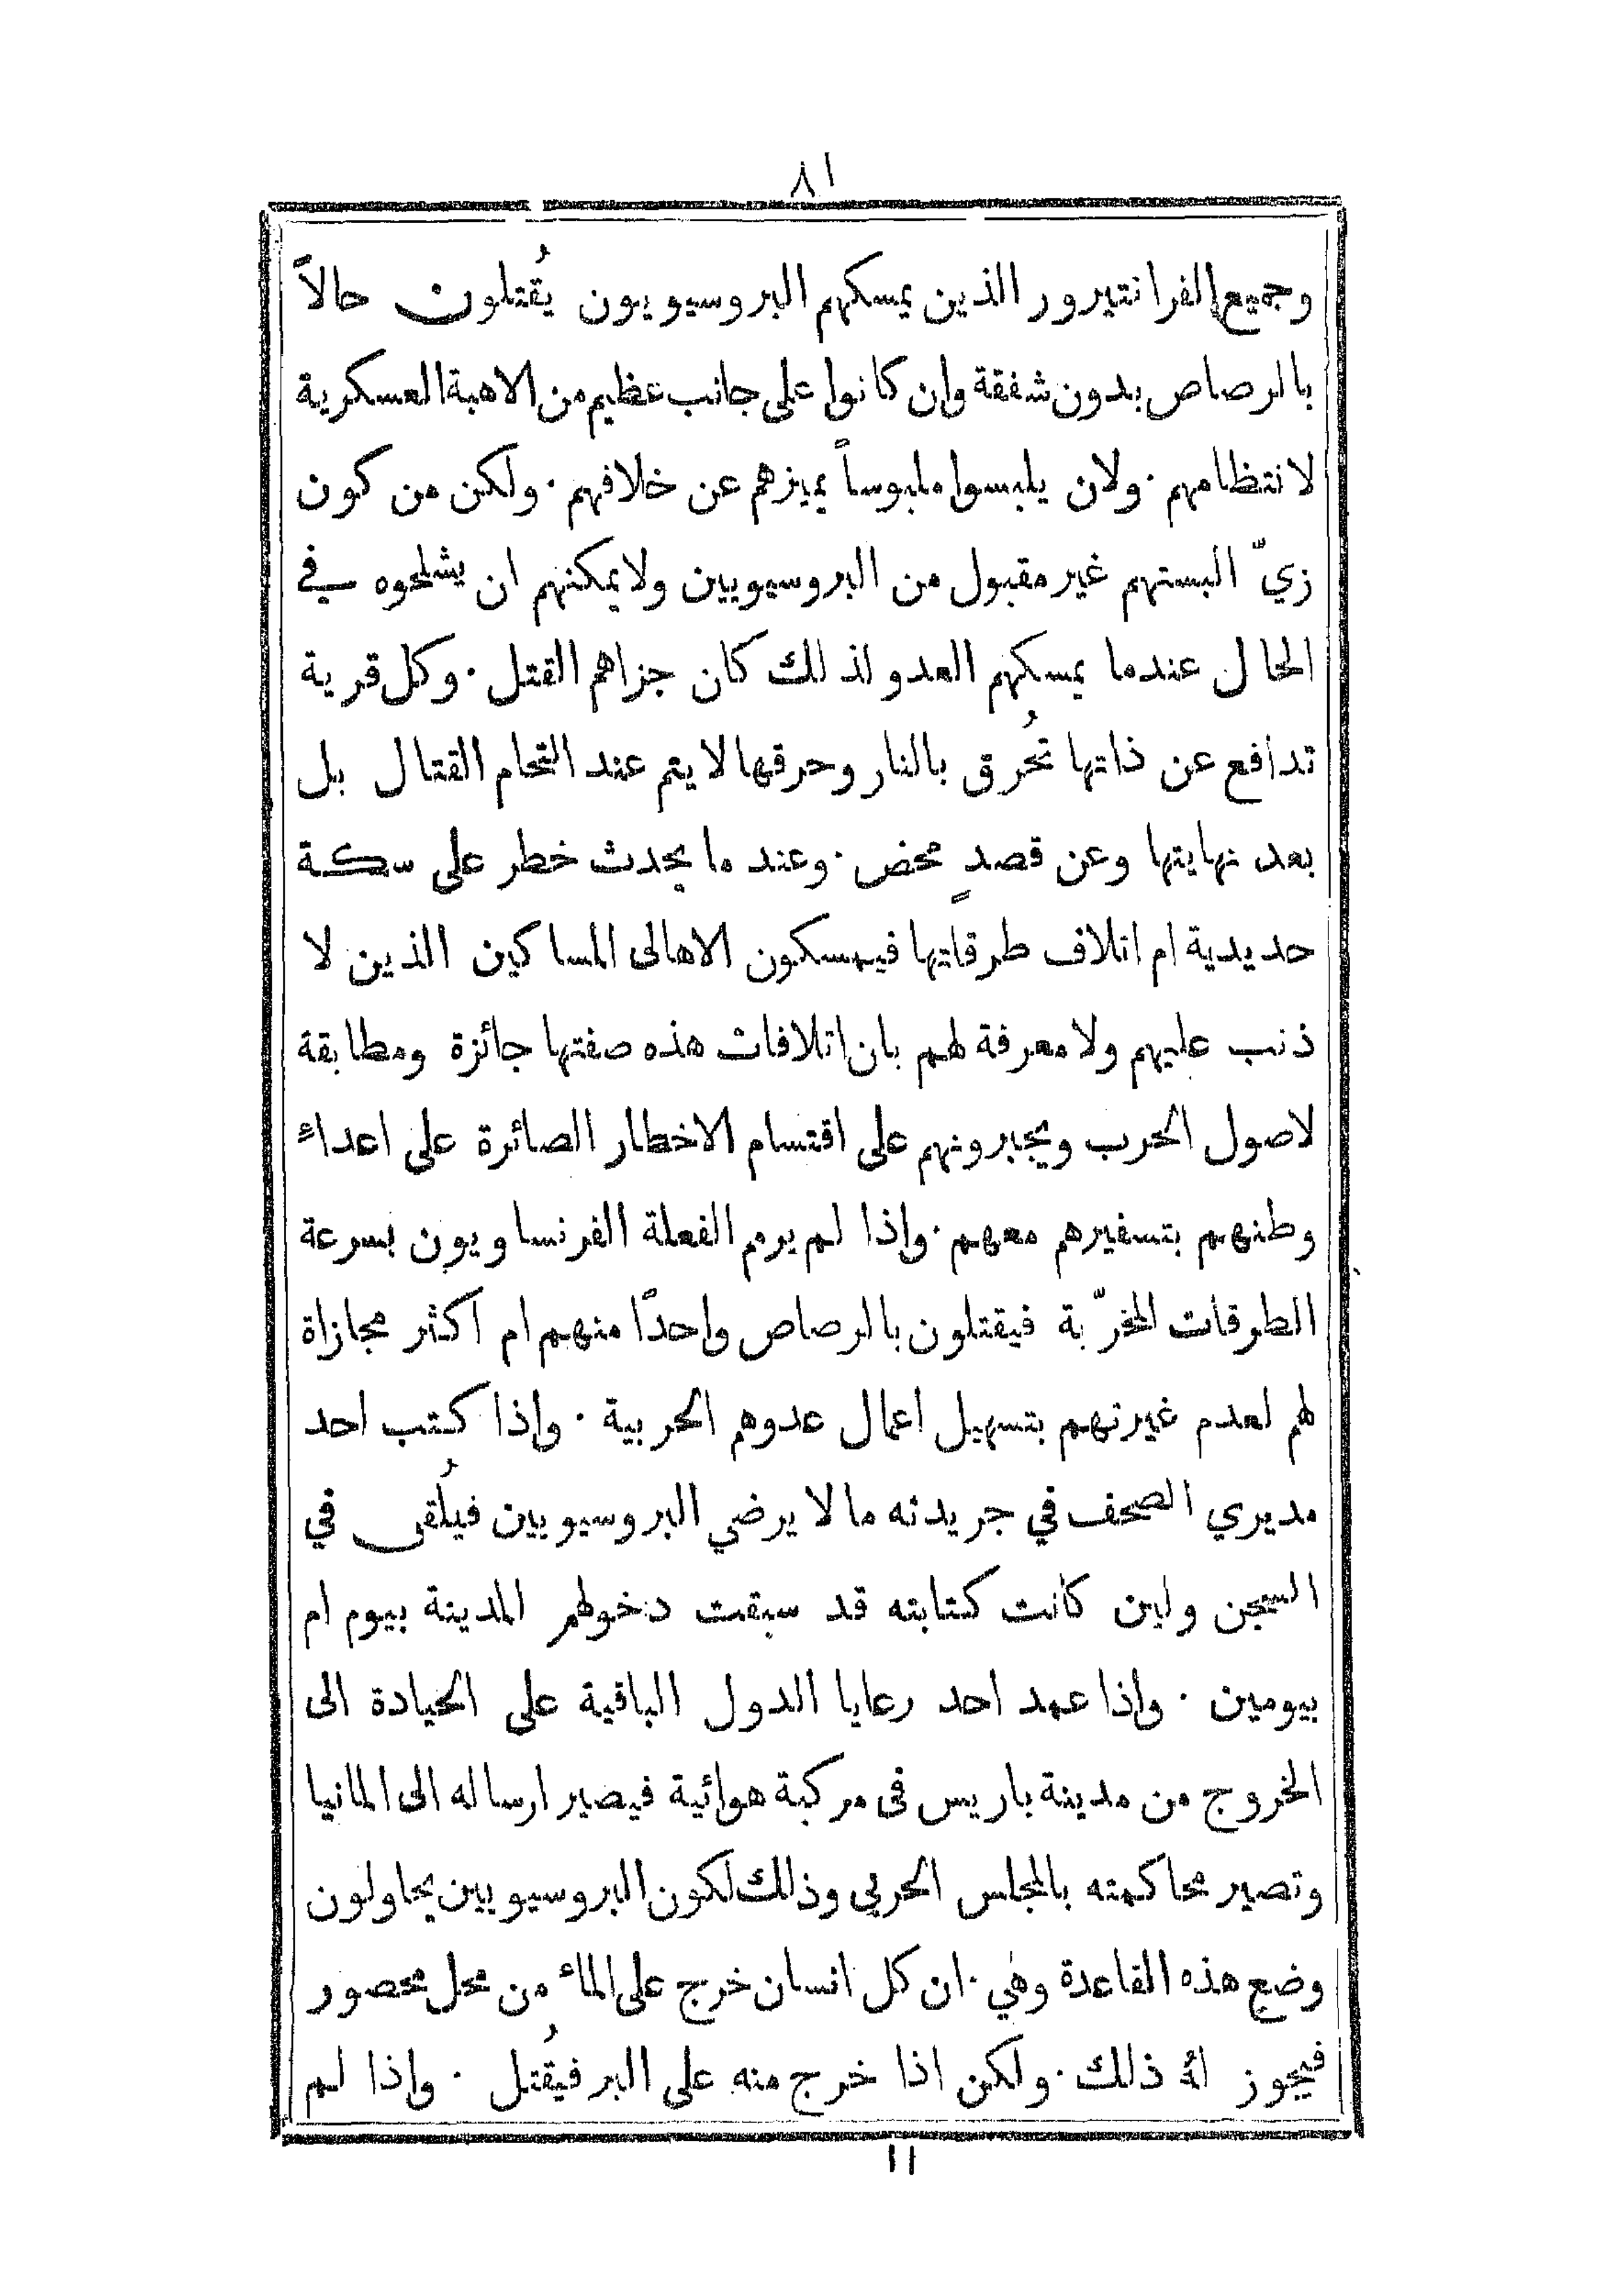 ٨١
وجميع الفرانتيرور الذين يمسكهم البروسيويون يُقتلون حالاً
بالرصاص بدون شفقة وان كانوا على جانب عظيم من الاهبة العسكرية
لانتظامهم ٠ ولان يلبسوا ملبوساً يميزهم عن خلافهم ٠ ولكن من كون
زيّ البستهم غير مقبول من البروسيويين ولا يمكنهم ان يشلحوه في
الحال عندما يمسكهم العدو لذلك كان جزاهم القتل ٠ وكل قرية
تدافع عن ذاتها تُحرق بالنار وحرقها لا يتم عند التحام القتال بل
بعد نهايتها وعن قصدٍ محض ٠ وعند ما يحدث خطر على سكة
حديدية ام اتلاف طرقاتها فيمسكون الاهالى المساكين الذين لا
ذنب عليهم ولا معرفة لهم بان اتلافات هذه صفتها جائزة ومطابقة
لاصول الحرب ويجبرونهم على اقتسام الاخطار الصائرة على اعداء
وطنهم بتسفيرهم معهم ٠ واذا لم يرمم الفعلة الفرنساويون بسرعة
الطرقات المخرّبة فيقتلون بالرصاص واحدًا منهم ام اكثر مجازاة
لهم لعدم غيرتهم بتسهيل اعمال عدوهم الحربية ٠ واذا كتب احد
مديري الصحف في جريدته ما لا يرضي البروسيويين فيُلقى في
السجن ولين كانت كتابته قد سبقت دخولهم المدينة بيوم ام
بيومين ٠ واذا عمد احد رعايا الدول الباقية على الحيادة الى
الخروج من مدينة باريس فى مركبة هوائية فيصير ارساله الى المانيا
وتصير محاكمته بالمجلس الحربي وذلك لكون البروسيويين يحاولون
وضع هذه القاعدة وهي ٠ ان كل انسان خرج على الماء من محل محصور
فيجوز له ذلك ٠ ولكن اذا خرج منه على البر فيُقتل ٠ واذا لم
١١